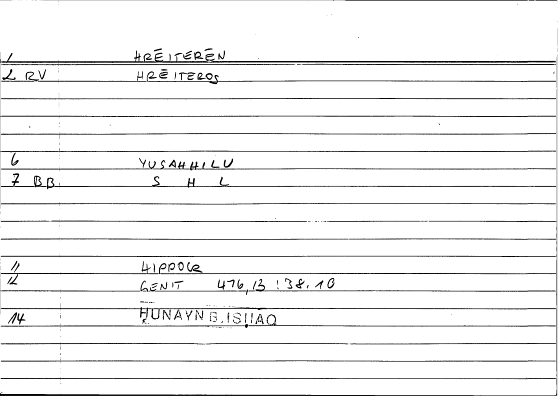 1 HRĒITERĒN
2 RV HRĒITEROS
6 YUSAHHILU
7 BB. S H L
11 HIPPOCR
12 GENIT 476,13 : 38.10
14 ḤUNAYN B. ISḤAQ